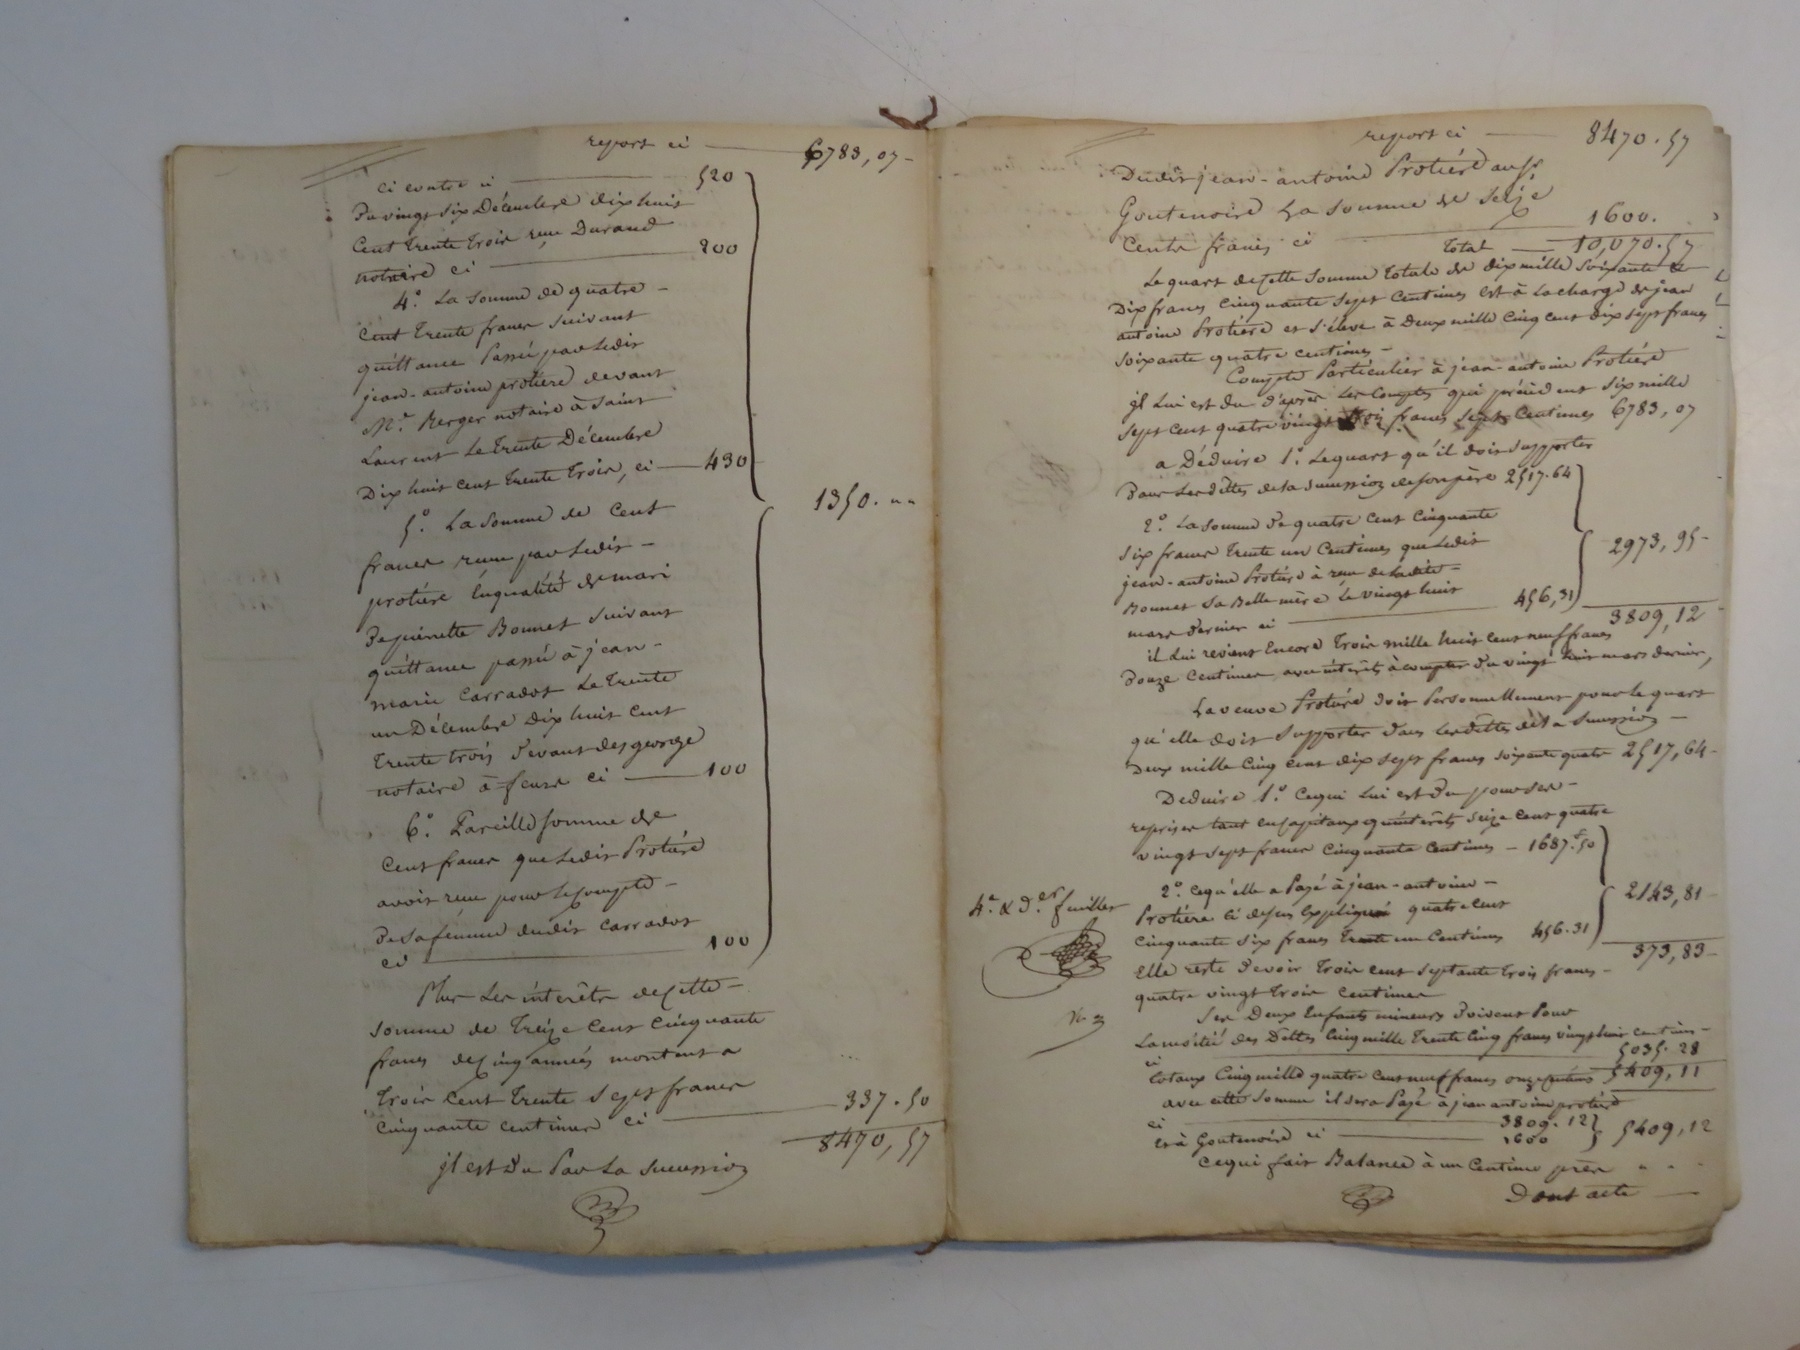 report ci 6783,07
ci contre ci 520
Du vingt six Décembre dix huit
Cent trente trois reçu Durand
notaire ci 200
4.° La somme de quatre
Cent trente francs suivant
quittance Passée par Ledit
jean-antoine protiere devant
M.e Berger notaire à Saint
Laurent Le trente Décembre
Dix huit cent trente trois, ci 430
1350. " "
5.° La Somme de Cent
francs reçue par Ledit
protiére En qualité de mari
De pierrette Bonnet suivant
quittance passée à jean-
marie Carradot Le trente
un Décembre Dix huit cent
trente trois Devant desgeorge
notaire à feurs ci 100
6.° Pareille somme de
Cent francs que Ledit Protiére
avoit reçu pour le compte
De sa femme dudit Carradot
ci 100
Plus Les interêts de cette
somme de treize Cent Cinquante
francs de cinq années montent a
trois Cent trente sept francs
Cinquante centimes ci 337.50
8470,57
jl est du Par La succession
report ci 8470.57
Dudit jean-antoine Protiére au sr
Goutenoire La somme de seize
Cents francs ci 1600.
total 10,070.57
Le quart de cette somme totale de dix mille soixante &
Dix francs Cinquante sept Centimes est à la charge de jean
antoine Protiére et s'éleve à Deux mille Cinq cent dix sept francs
soixante quatre centimes
Compte Particulier à jean-antoine Protiére
jl Lui est du d'après Les Comptes qui précèdent six mille
sept cent quatre vingt trois francs sept Centimes 6783,07
a Déduire 1.° Le quart qu'il doit supporter
Dans Les dettes de la succession de son père 2517.64
2.° La somme de quatre cent Cinquante
six francs trente un Centimes que Ledit
jean-antoine Protiére à reçu de Ladite
Bonnet sa Belle mère Le vingt huit
mars dernier ci 456,31
2973,95
3809,12
il Lui revient Encore trois mille huit cent neuf francs
Douze Centimes avec intérêts à compter du vingt huit mars dernier,
La veuve Protiére doit Personnellement pour le quart
qu'elle doit supporter Dans Les dettes de la succession
Deux mille Cinq cent dix sept francs soixante quatre 2517,64
Deduire 1.° Ce qui Lui est du pour ses
reprises tant en capitaux qu'intérêts seize cent quatre
vingt sept francs Cinquante Centimes 1687.50
2.° Ce qu'elle a Payé à jean-antoine
Protiére ci dessus Expliqué quatre cent
Cinquante six francs trente un Centimes 456.31
2143,81
373,83
Elle reste devoir trois cent septante trois francs
quatre vingt trois centimes
4.e & D.er feuillet
Ses Deux Enfants mineurs Doivent Pour
La moitié des Dettes Cinq mille trente Cinq francs vingt huit centimes
ci 5035.28
totaux Cinq mille quatre cent neuf francs onze centimes 5409,11
avec cette somme il sera Payé à jean antoine protiére
ci 3809.12
Et à Goutenoire ci 1600
5409,12
Ce qui fait Balance à un Centime près
Dont acte